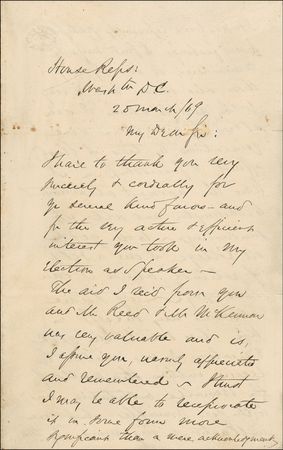 House Reps:
Washtn D.C.
25 March/69
My Dear Sir:
I have to thank you very
sincerely & cordially for
yr several kind favors and
for the very active & efficient
interest you took in my
election as Speaker —
The aid I recd from you
and Mr Reed & Mr McKennan
was very valuable and is,
I assure you, warmly appreciated
and remembered — I trust
I may be able to reciprocate
it in some form more
significant than a mere acknowledgment